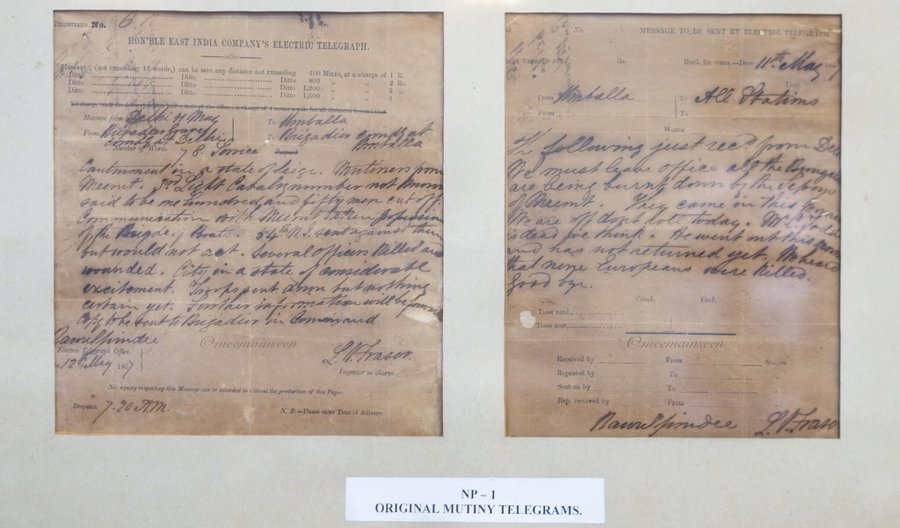 No. 6
HON'BLE EAST INDIA COMPANY'S ELECTRIC TELEGRAPH.
(not exceeding 16 words,) can be sent any distance not exceeding 400 Miles, at a charge of 1 R.
Ditto Ditto Ditto 800 " 2 Rs.
Ditto Ditto Ditto 1,200 "
Ditto Ditto Ditto 1,600 "
Message from Delhi 11 May To Umballa
From Brigadier Graves To Brigadier comdg at
comdg at Delhi Umballa
Number of Words 78. Service
Cantonment in a state of seige. Mutineers from
Meerut. 3rd Light Cavalry number not known
said to be one hundred and fifty men cut off
Communication with Meerut taken possession
of the Bridge of Boats. 54th N.I. sent against them
but would not act. Several officers killed and
wounded. City in a state of considerable
excitement. Troops sent down but nothing
certain yet. Further information will be
Copy to be sent to Brigadier in Command
Rawulpindee
Electric Telegraph Office,
12th May 1857
L.V. Fraser
Inspector in charge.
No enquiry respecting this Message can be attended to without the production of this Paper
Despatch 7.20 A.M.
N. B.—Please enter Time of delivery.
@meemainseen
No. MESSAGE TO BE SENT BY ELECTRIC TELEGRAPH
Rs. Date 11th May 185
From Umballa To All Stations
From To
Words
The following just recd from
We must leave office all the Bungalows
are being burnt down by the Sepoys
of Meerut. They came in this
We are off don't today. Mr
is dead we think. He went out this
and has not returned yet. We heard
that nine Europeans were killed.
Good bye.
Comd. Find.
Time recd
Time sent
@meemainseen
Received by From Station
Repeated by To
Sent on by To
Rep. received by From
Rawulpindee L.V. Fraser
NP – 1
ORIGINAL MUTINY TELEGRAMS.